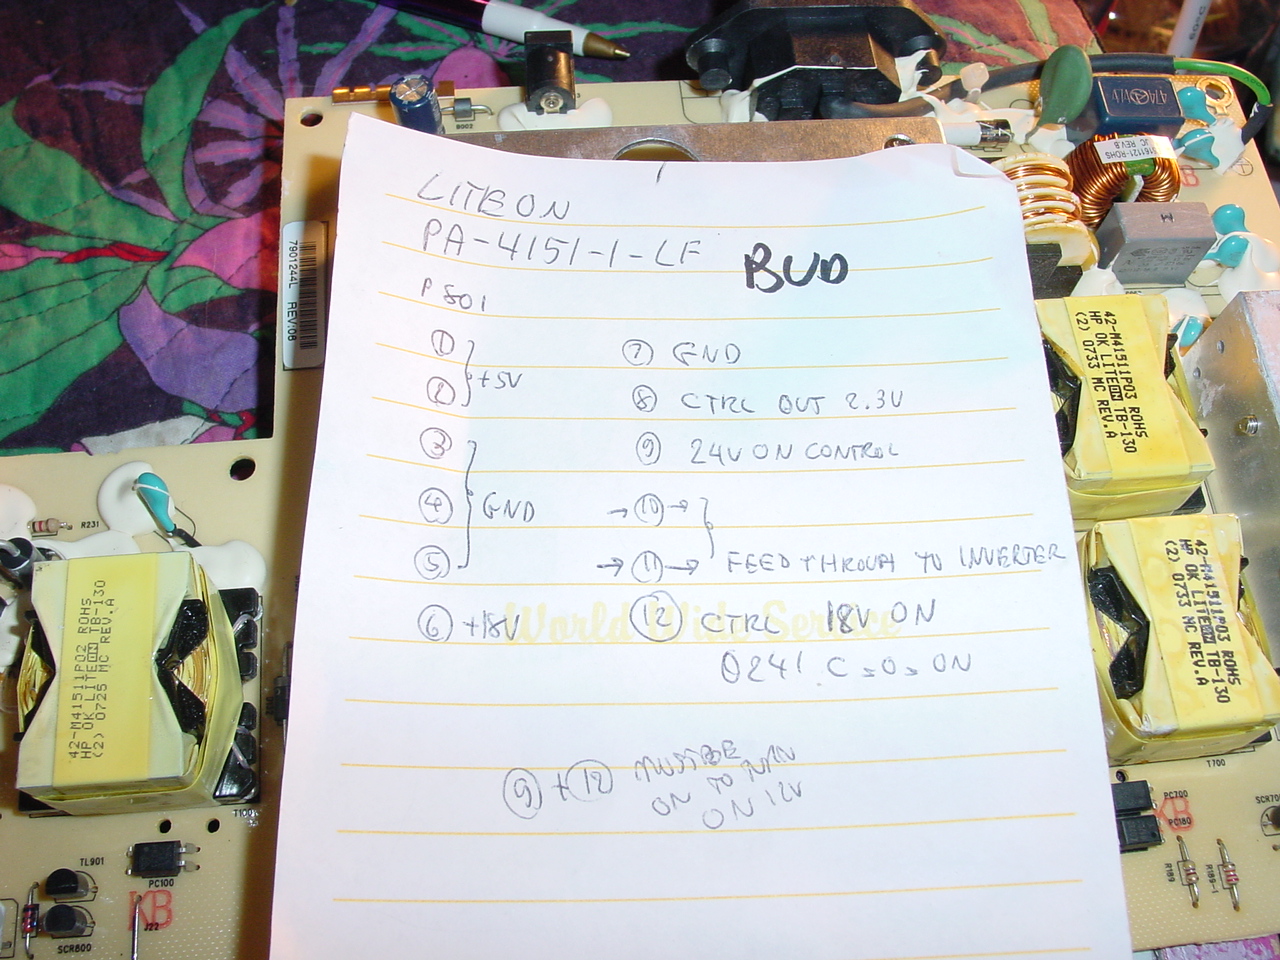 LITEON
PA-4151-1-LF
BUD
P801
① } +5V
②
③ } GND
④
⑤
⑥ +18V
⑦ GND
⑧ CTRL OUT 2.3V
⑨ 24V ON CONTROL
→ ⑩ →
→ ⑪ → } FEED THROUGH TO INVERTER
⑫ CTRL 18V ON
Q241 C=0=ON
World Wide Service
⑨ + ⑫ MUST BE
ON TO TURN
ON 12V
7901244L REV:08
R231
42-M41511P02 ROHS
HP OK LITEON TB-130
(2) 0725 MC REV.A
T100
TL901
PC100
KB
J22
SCR800
B002
474
161121-ROHS
JC REV.B
KB
42-M41511P03 ROHS
HP OK LITEON TB-130
(2) 0733 MC REV.A
42-M41511P03 ROHS
HP OK LITEON TB-130
(2) 0733 MC REV.A
T700
PC700
PC180
KB
R189
R189-1